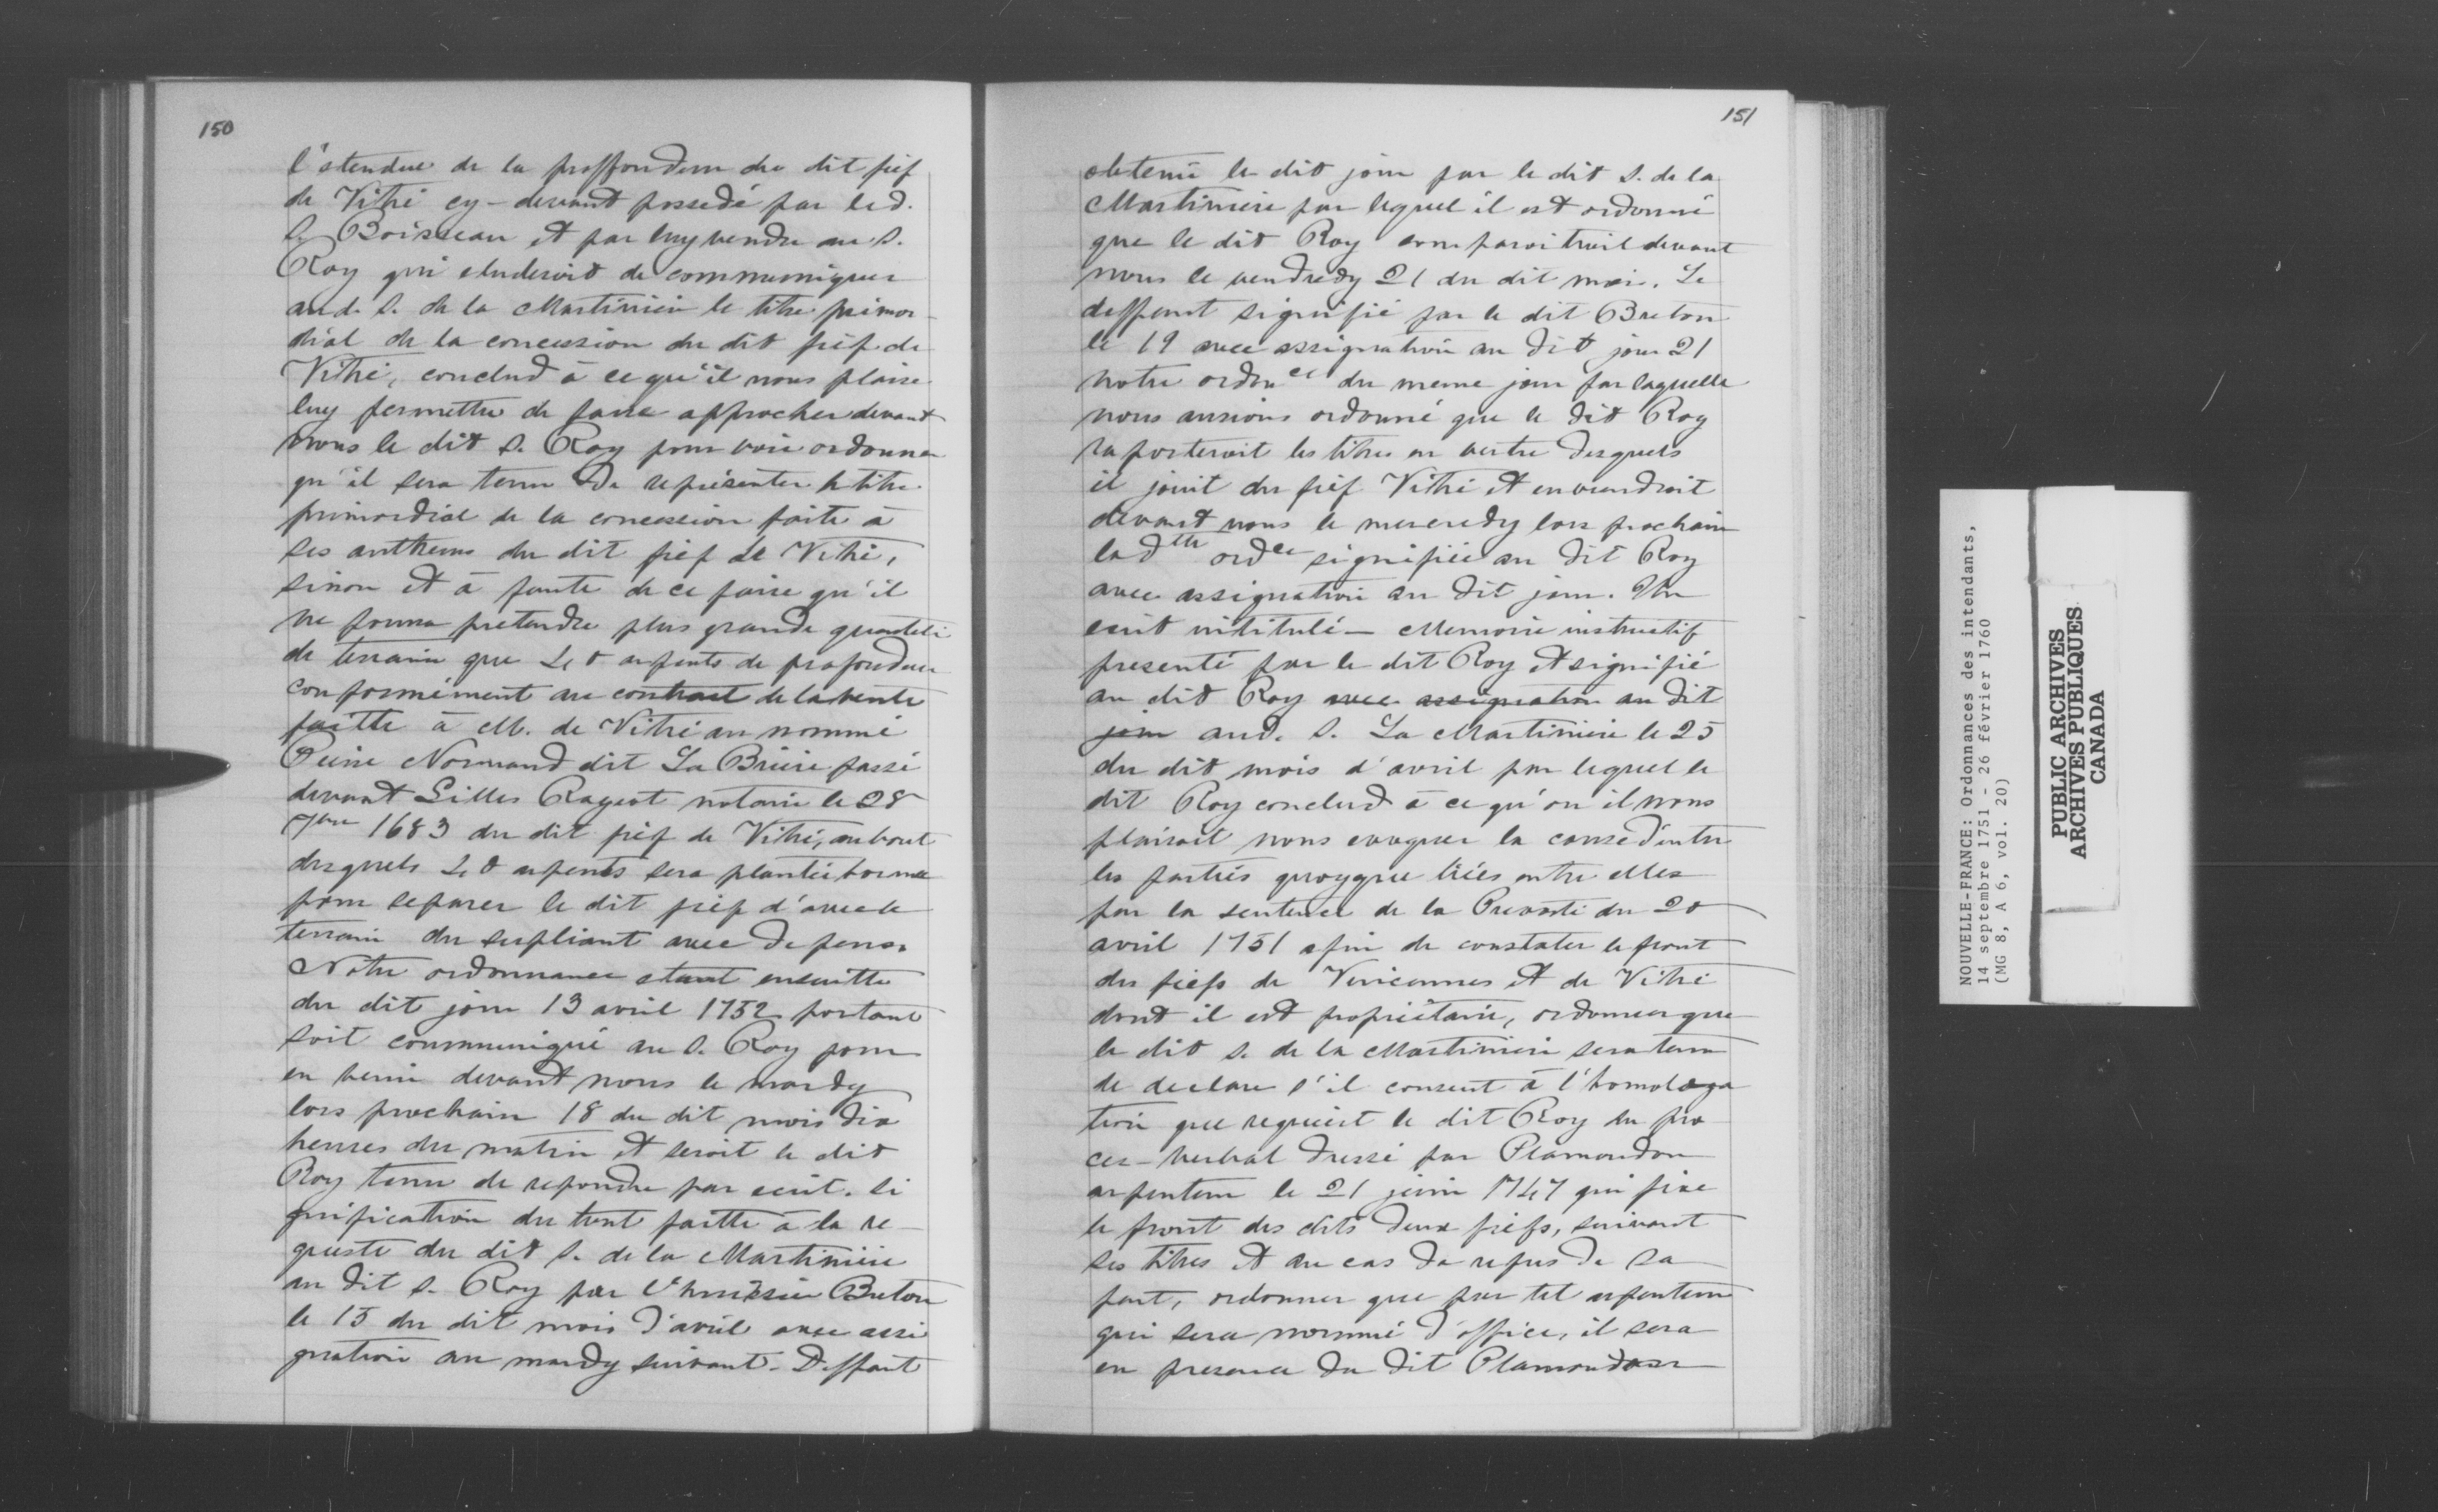 150
l'etendue de la proffondeur du dit fief
de Vitré cy-devant possedé par led.
S. Boisseau et par luy vendu au S.
Roy qui eluderoit de communiquer
aud. S. de la Martiniere le titre primor-
dial de la concession du dit fief de
Vitré, conclud à ce qu'il nous plaise
luy permettre de faire approcher devant
nous le dit S. Roy pour voir ordonner
qu'il sera tenu de representer le titre
primordial de la concession faite à
ses autheurs du dit fief de Vitré,
sinon et à faute de ce faire qu'il
ne pourra pretendre plus grande quantité
de terrain que 40 arpents de profondeur
conformément au contract de la vente
faitte à M. de Vitré au nommé
Pierre Normand dit La Briere passé
devant Gilles Rageot notaire le 28
7bre 1683 du dit fief de Vitré, au bout
desquels 40 arpents sera plantée borne
pour separer le dit fief d'avec le
terrain du supliant avec depens.
Notre ordonnance etant ensuitte
du dit jour 13 avril 1752 portant
soit communiqué au S. Roy pour
en venir devant nous le mardy
lors prochain 18 du dit mois dix
heures du matin et seroit le dit
Roy tenu de repondre par ecrit. Si
gnification du tout faitte à la re-
queste du dit S. de la Martiniere
au dit S. Roy par l'huissier Breton
le 15 du dit mois d'avril avec assi
gnation au mardy suivant. Deffaut
151
obtenu le dit jour par le dit S. de la
Martiniere par lequel il est ordonné
que le dit Roy comparoitroit devant
nous le vendredy 21 du dit mois. Le
deffaut signifié par le dit Breton
le 19 avec assignation au dit jour 21
notre ordonce du meme jour par laquelle
nous aurions ordonné que le dit Roy
raporteroit les titres en vertu desquels
il jouit du fief Vitré et en viendroit
devant nous le mercredy lors prochain
la dtte ordce signifiée au dit Roy
avec assignation au dit jour. Un
ecrit intitulé — Memoire instructif
presenté par le dit Roy et signifié
au dit Roy avec assignation au dit
jour aud. S. La Martiniere le 25
du dit mois d'avril par lequel le
dit Roy conclud à ce qu'on il nous
plairait nous evoquer la cause d'entre
les parties quoyque liées entre elles
par la sentence de la Prevosté du 20
avril 1751 afin de constater le front
des fiefs de Vincennes et de Vitré
dont il est proprietaire, ordonner que
le dit S. de la Martiniere sera tenu
de declarer s'il consent à l'homologa
tion que requiert le dit Roy du pro
ces-verbal dressé par Plamondon
arpenteur le 21 juin 1747 qui fixe
le front des dits deux fiefs, suivant
ses titres et au cas de refus de sa
part, ordonner que par tel arpenteur
qui sera nommé d'office, il sera
en presence du dit Plamondon
NOUVELLE-FRANCE: Ordonnances des intendants,
14 septembre 1751 - 26 février 1760
(MG 8, A 6, vol. 20)
PUBLIC ARCHIVES
ARCHIVES PUBLIQUES
CANADA